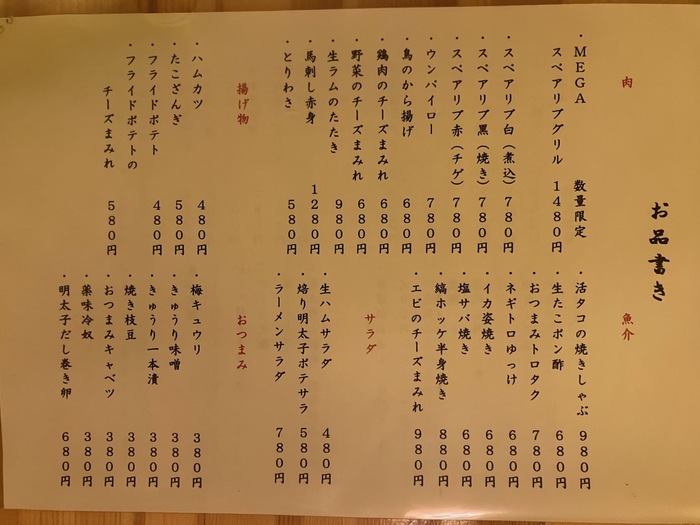 お品書き
肉
・MEGA 数量限定
スペアリブグリル 1480円
・スペアリブ白(煮込) 780円
・スペアリブ黒(焼き) 780円
・スペアリブ赤(チゲ) 780円
・ウンパイロー 780円
・鳥のから揚げ 680円
・鶏肉のチーズまみれ 680円
・野菜のチーズまみれ 680円
・生ラムのたたき 980円
・馬刺し赤身 1280円
・とりわさ 580円
揚げ物
・ハムカツ 480円
・たこざんぎ 580円
・フライドポテト 480円
・フライドポテトの
チーズまみれ 580円
魚介
・活タコの焼きしゃぶ 980円
・生たこポン酢 680円
・おつまみトロタク 780円
・ネギトロゆっけ 680円
・イカ姿焼き 680円
・塩サバ焼き 680円
・縞ホッケ半身焼き 880円
・エビのチーズまみれ 980円
サラダ
・生ハムサラダ 480円
・焙り明太子ポテサラ 580円
・ラーメンサラダ 780円
おつまみ
・梅キュウリ 380円
・きゅうり味噌 380円
・きゅうり一本漬 380円
・焼き枝豆 380円
・おつまみキャベツ 380円
・薬味冷奴 380円
・明太子だし巻き卵 680円